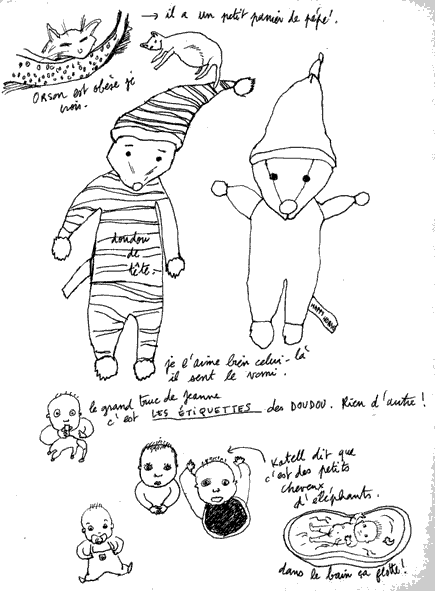 → il a un petit panier de pépé !
Orson est obèse je
crois.
doudou
de
tête.
je l'aime bien celui-là
il sent le vomi.
le grand truc de Jeanne
c'est LES ÉTIQUETTES des DOUDOU. Rien d'autre !
Katell dit que
c'est des petits
cheveux
d'éléphants.
dans le bain ça flotte !